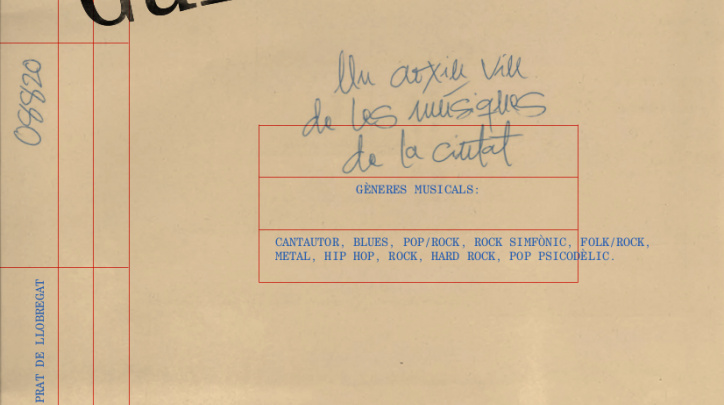 Un arxiu viu
de les músiques
de la ciutat
GÈNERES MUSICALS:
CANTAUTOR, BLUES, POP/ROCK, ROCK SIMFÒNIC, FOLK/ROCK,
METAL, HIP HOP, ROCK, HARD ROCK, POP PSICODÈLIC.
08820
PRAT DE LLOBREGAT